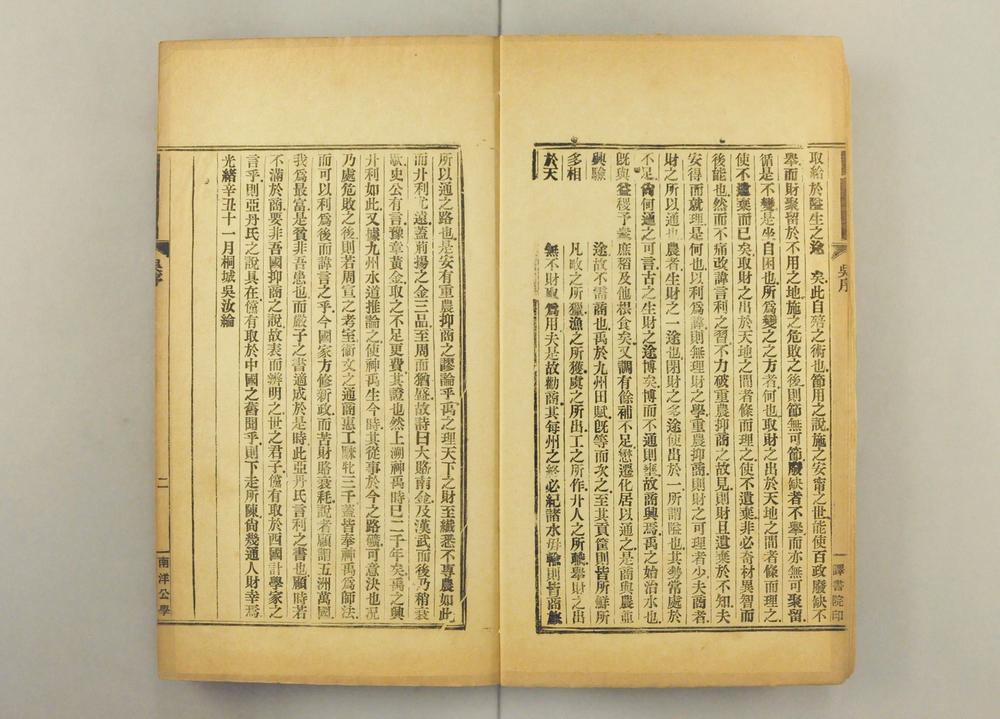 譯書院印
吳序
取給於隘生之途 矣此自殆之術也節用之說施之安甯之世能使百政廢缺不
舉而財聚留於不用之地施之危敗之後則節無可節廢缺者不舉而亦無可聚留
循是不變是坐自困也所爲變之之方者何也取財之出於天地之間者條而理之
使不遺棄而已矣取財之出於天地之間者條而理之使不遺棄非必奇材異智而
後能也然而不痛改諱言利之習不力破重農抑商之故見則財且遺棄於不知夫
安得而就理是何也以利爲諱則無理財之學重農抑商則財之可理者少夫商者
財之所以通也農者生財之一途也閉財之多途使出於一所謂隘也其勢常處於
不足尙何通之可言古之生財之途博矣博而不通則壅故商興焉禹之始治水也
旣與益稷予衆庶稻及他糗食矣又調有餘補不足懋遷化居以通之是商與農並
興驗 途故不需商也禹於九州田賦旣等而次之至其貢篚則皆所鮮所
多相 凡畋之所獵漁之所獲虞之所出工之所作廾人之所 舉財之出
於天 無不財 爲用夫是故勸商其每州之終必紀諸水毋 則皆商旅
所以通之路也是安有重農抑商之謬論乎禹之理天下之財至纖悉不專農如此
而廾利尤遠蓋荊揚之金三品至周而猶盛故詩曰大賂南金及漢武而後乃稍衰
歇史公有言豫章黃金取之不足更費其證也然上溯神禹時巳二千年矣禹之興
廾利如此又據九州水道推論之使神禹生今時其從事於今之路礦可意決也况
乃處危敗之後則若周宣之考室衞文之通商惠工騋牝三千蓋皆奉神禹爲師法
而可以利爲後而諱言之乎今國家方修新政而苦財賂衰耗說者顧謂五洲萬國
我爲最富是貧非吾患也而嚴子之書適成於是時此亞丹氏言利之書也顧時若
不滿於商要非吾國抑商之說故表而辨明之世之君子儻有取於西國計學家之
言乎則亞丹氏之說具在儻有取於中國之舊聞乎則下走所陳尙幾通人財幸焉
光緒辛丑十一月桐城吳汝綸
吳序
二
南洋公學